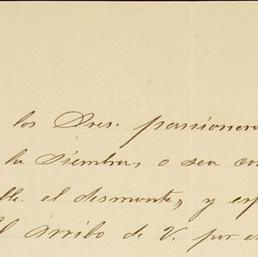 los Sres. passionero
la siembra, o sea con
el desmonte, y esp
arribo de V. por e